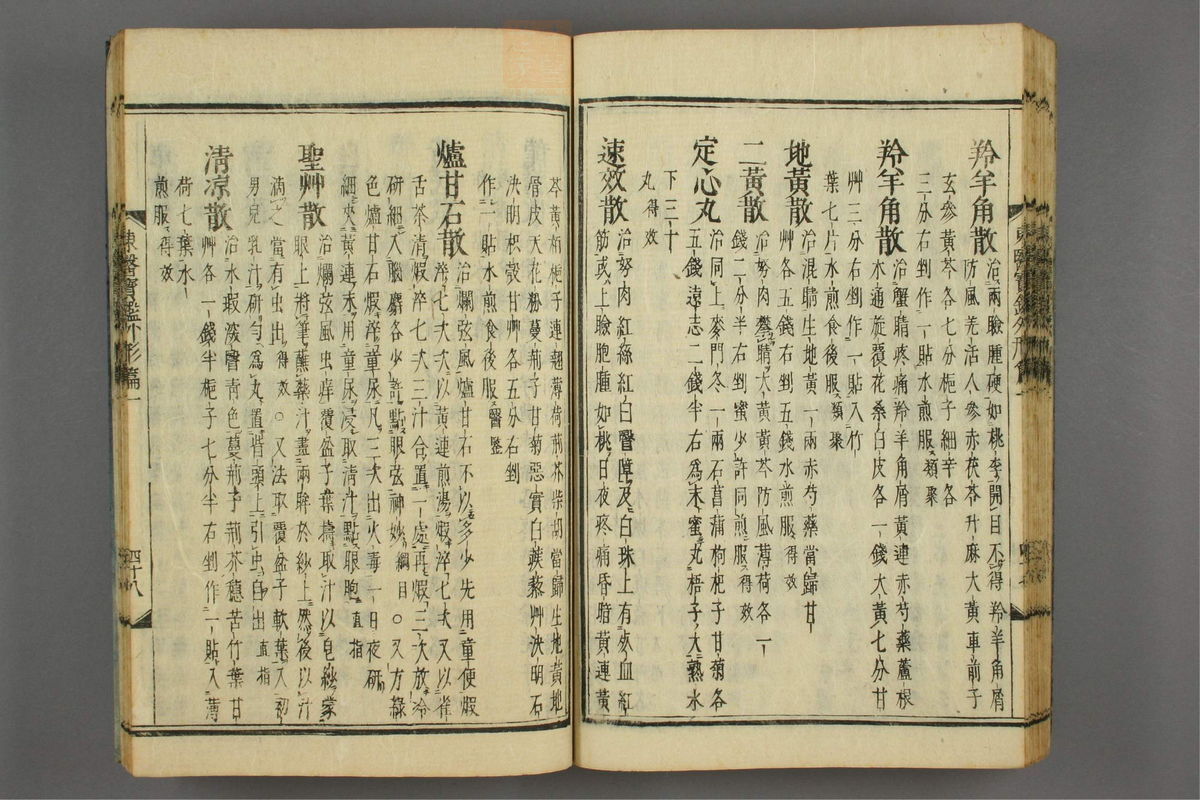 羚羊角散治兩瞼腫硬如桃李開目不得羚羊角屑
防風羌活人參赤茯苓升麻大黃車前子
玄參黃芩各七分梔子細辛各
三分右剉作一貼水煎服類聚
羚羊角散治蟹睛疼痛羚羊角屑黃連赤芍藥蘆根
木通旋覆花桑白皮各一錢大黃七分甘
艸三分右剉作一貼入竹
葉七片水煎食後服類聚
地黃散治混睛生地黃一兩赤芍藥當歸甘
艸各五錢右剉五錢水煎服得效
二黃散治努肉攀睛大黃黃芩防風薄荷各一
錢二分半右剉蜜少許同煎服得效
定心丸治同上麥門冬一兩石菖蒲枸杞子甘菊各
五錢遠志二錢半右爲末蜜丸梧子大熟水
下三十
丸得效
速效散治努肉紅絲紅白瞖障及白珠上有死血紅
筋或上瞼胞腫如桃日夜疼痛昏暗黃連黃
芩黃栢梔子連翹薄荷荊芥柴胡當歸生地黃地
骨皮天花粉蔓荊子甘菊惡實白蒺藜艸決明石
決明枳殼甘艸各五分右剉
作一貼水煎食後服醫鑒
爐甘石散治爛弦風爐甘石不以多少先用童便煆
淬七次次以黃連煎湯煆淬七次又以雀
舌茶清煆淬七次三汁合置一處再煆三次放冷
硏細入腦麝各少許點眼弦神妙綱目○又方綠
色爐甘石煆淬童尿凡三次出火毒一日夜硏
細夾黃連末用童尿浸取淸汁點眼胞直指
聖艸散治爛弦風虫痒覆盆子葉擣取汁以皂紗蒙
眼上將筆蘸藥汁畫兩眸於紗上然後以汁
滴之當有虫出得效○又法取覆盆子軟葉入初
男兒乳汁硏勻爲丸置眥頭上引虫自出直指
淸凉散治水瑕深瞖靑色蔓荊子荊芥穗苦竹葉甘
艸各一錢半梔子七分半右剉作一貼入薄
荷七葉水
煎服得效
東醫寶鑑外形篇一
四十八